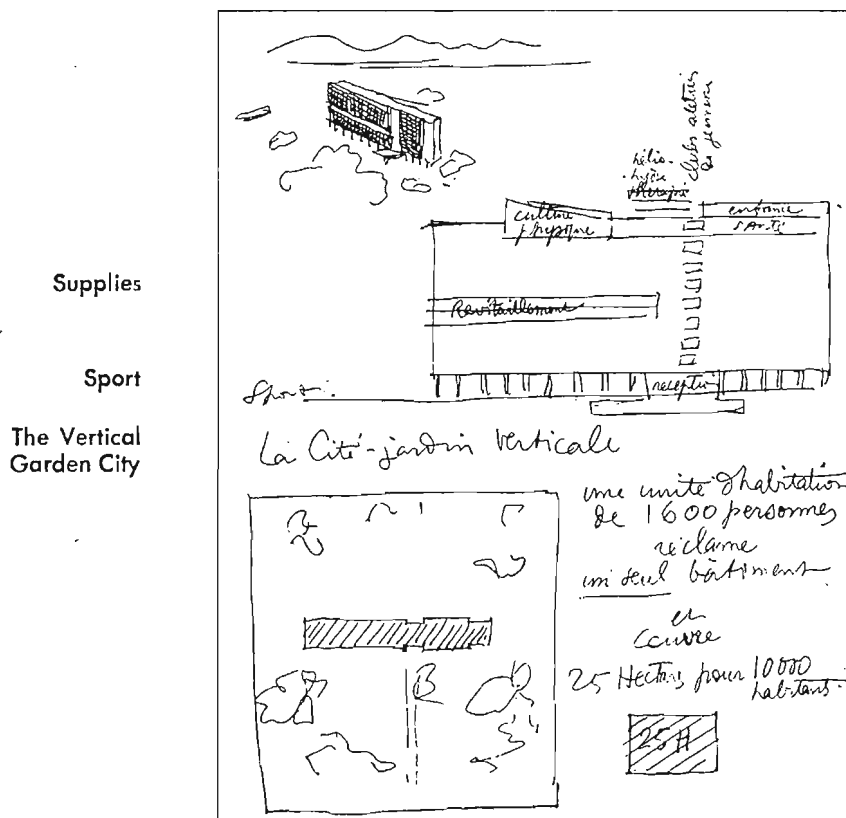 Supplies
Sport
The Vertical
Garden City
clubs ateliers
de jeunesse
hélio-
thérapie
culture
physique
enfance
santé
Ravitaillement
Sport:
La Cité-jardin verticale
une unité d'habitation
de 1600 personnes
réclame
un seul bâtiment
et
couvre
25 Hectares pour 10000
habitants.
B
25 H